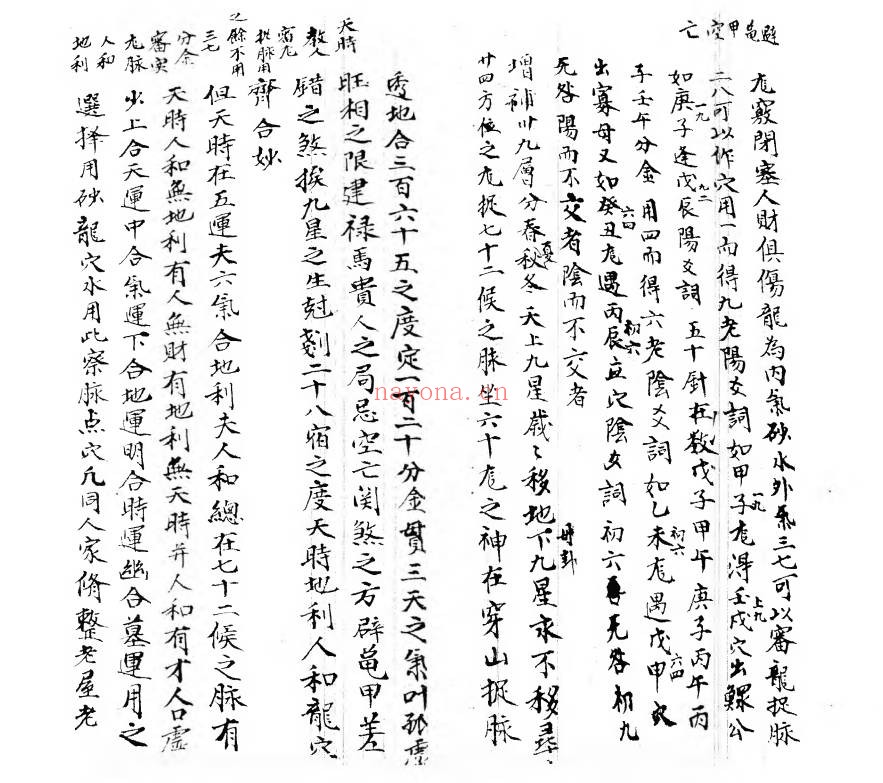 避龟甲空亡
尨竅閉塞人財俱傷龍為内氣砂水外氣三七可以審龍捉脉
二八可以作穴用一而得九老陽爻詞如甲子尨得壬戌穴出鰥公
一九
上九
如庚子逢戊辰陽爻詞五十針在殺戊子甲午庚子丙午丙
一九
九二
子壬午分金用四而得六老陰爻詞如乙未尨遇戊申穴
初六
六四
出寡母又如癸丑尨遇丙辰直穴陰爻詞初六 无咎初九
六四
初六
无咎陽而不交者陰而不交者
增補卅九層分春夏秋冬天上九星歲々移地下九星永不移尋
廿四方位之尨捉七十二候之脉坐六十尨之神在穿山捉脉
毋卦
透地合三百六十五之度定一百二十分金貫三天之氣叶孤虛
旺相之限建禄馬貴人之局忌空亡関煞之方辟龟甲差
天時
錯之煞挨九星之生尅剗二十八宿之度天時地利人和龍穴
教人
宿尨
捉脉用
之餘不用
齊合妙
但天時在五運夫六氣合地利夫人和總在七十二候之脉有
三七
分金
天時人和無地利有人無財有地利無天時并人和有才人口虛
審穴
尨脉
少上合天運中合氣運下合地運明合時運幽合墓運用之
人和
地利
選择用砂龍穴水用此察脉点穴凡同人家脩整老屋老
nayona.cn